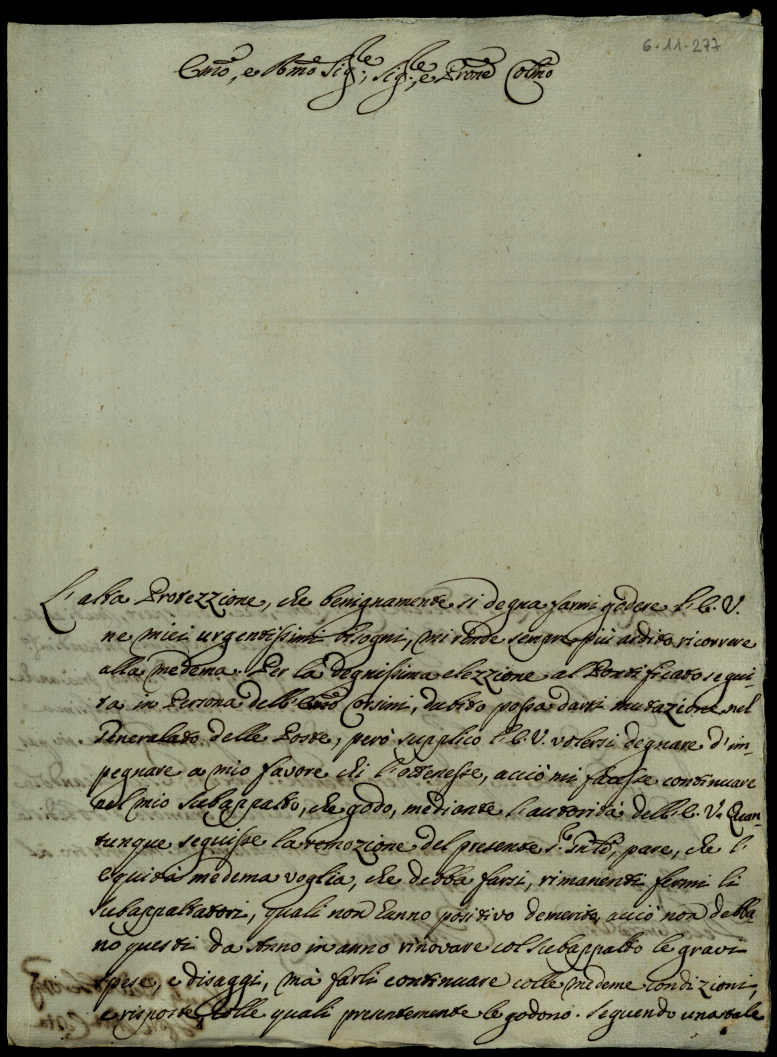 6-11-277
Emo, e Rmo Sig.re, Sig.re, e Prone Colmo
L'alta Protezzione, che benignamente si degna farmi godere l'E.V.
ne miei urgentissimi bisogni, mi rende sempre più ardito ricorrere
alla medema. Per la degnissima elezzione al Pontificato segui-
ta in Persona dell'Emo Corsini, dubito possa darsi mutazione nel
Generalato delle Poste, però supplico l'E.V. volersi degnare d'im-
pegnare a mio favore chi l'ottenesse, acciò mi facesse continuare
nel mio subappalto, che godo, mediante l'autorità dell'E.V. Quan-
tunque seguisse la remozione del presente, pare, che l'
equità medema voglia, che debba farsi, rimanenti fermi li
subappaltatori, quali non hanno positivo demerito, acciò non debba-
no questi da Anno in anno rinovare col subappalto le gravi
spese, e disaggi, mà farli continuare colle medeme condizioni,
e risposte, colle quali presentemente le godono. Seguendo una tale